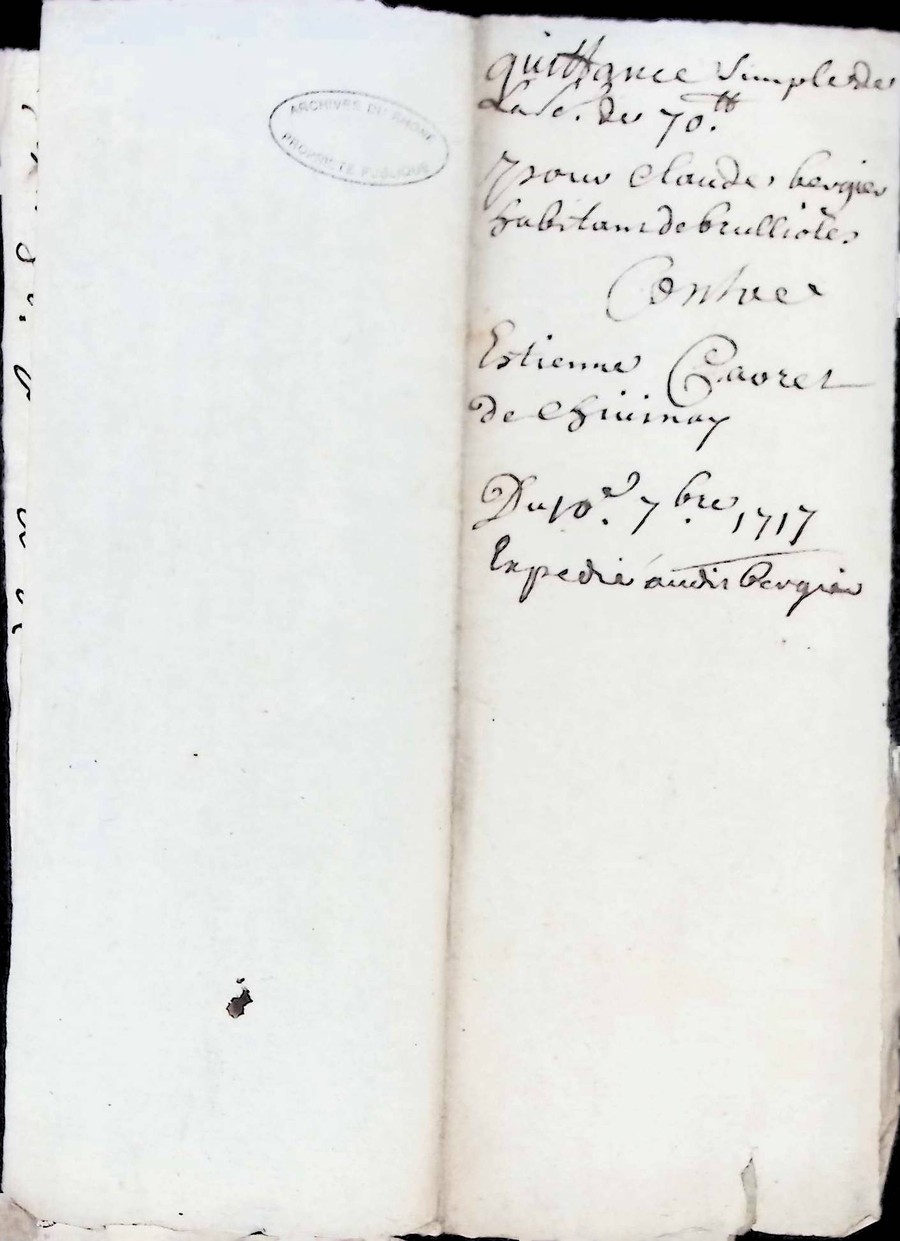 ARCHIVES DU RHONE
PROPRIETE PUBLIQUE
quittance simple de
La so. de 70.tt
pour Claude bergier
habitant de brulliolles
Contre
Estienne Gavret
de
Du 10.e 7.bre 1717
Expedié audit bergier